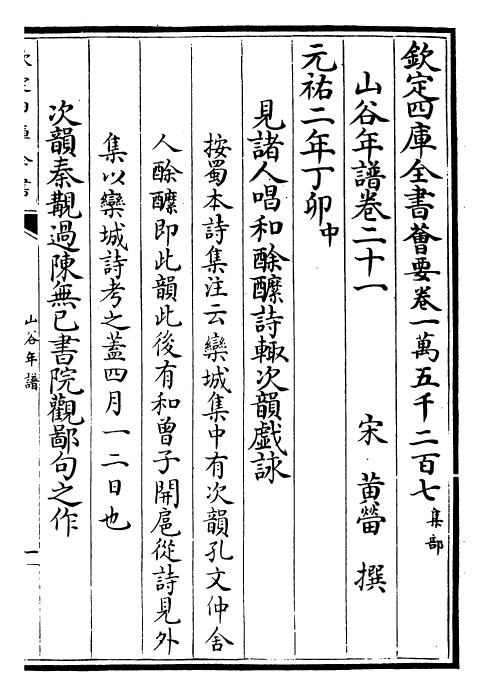 欽定四庫全書薈要卷一萬五千二百七集部
山谷年譜卷二十一
宋 黃㽦 撰
元祐二年丁卯中
見諸人唱和酴醾詩輙次韻戲詠
按蜀本詩集注云欒城集中有次韻孔文仲舍
人酴醾即此韻此後有和曾子開扈從詩見外
集以欒城詩考之蓋四月一二日也
次韻秦覯過陳無已書院觀鄙句之作
欽定四庫全書
山谷年譜
一